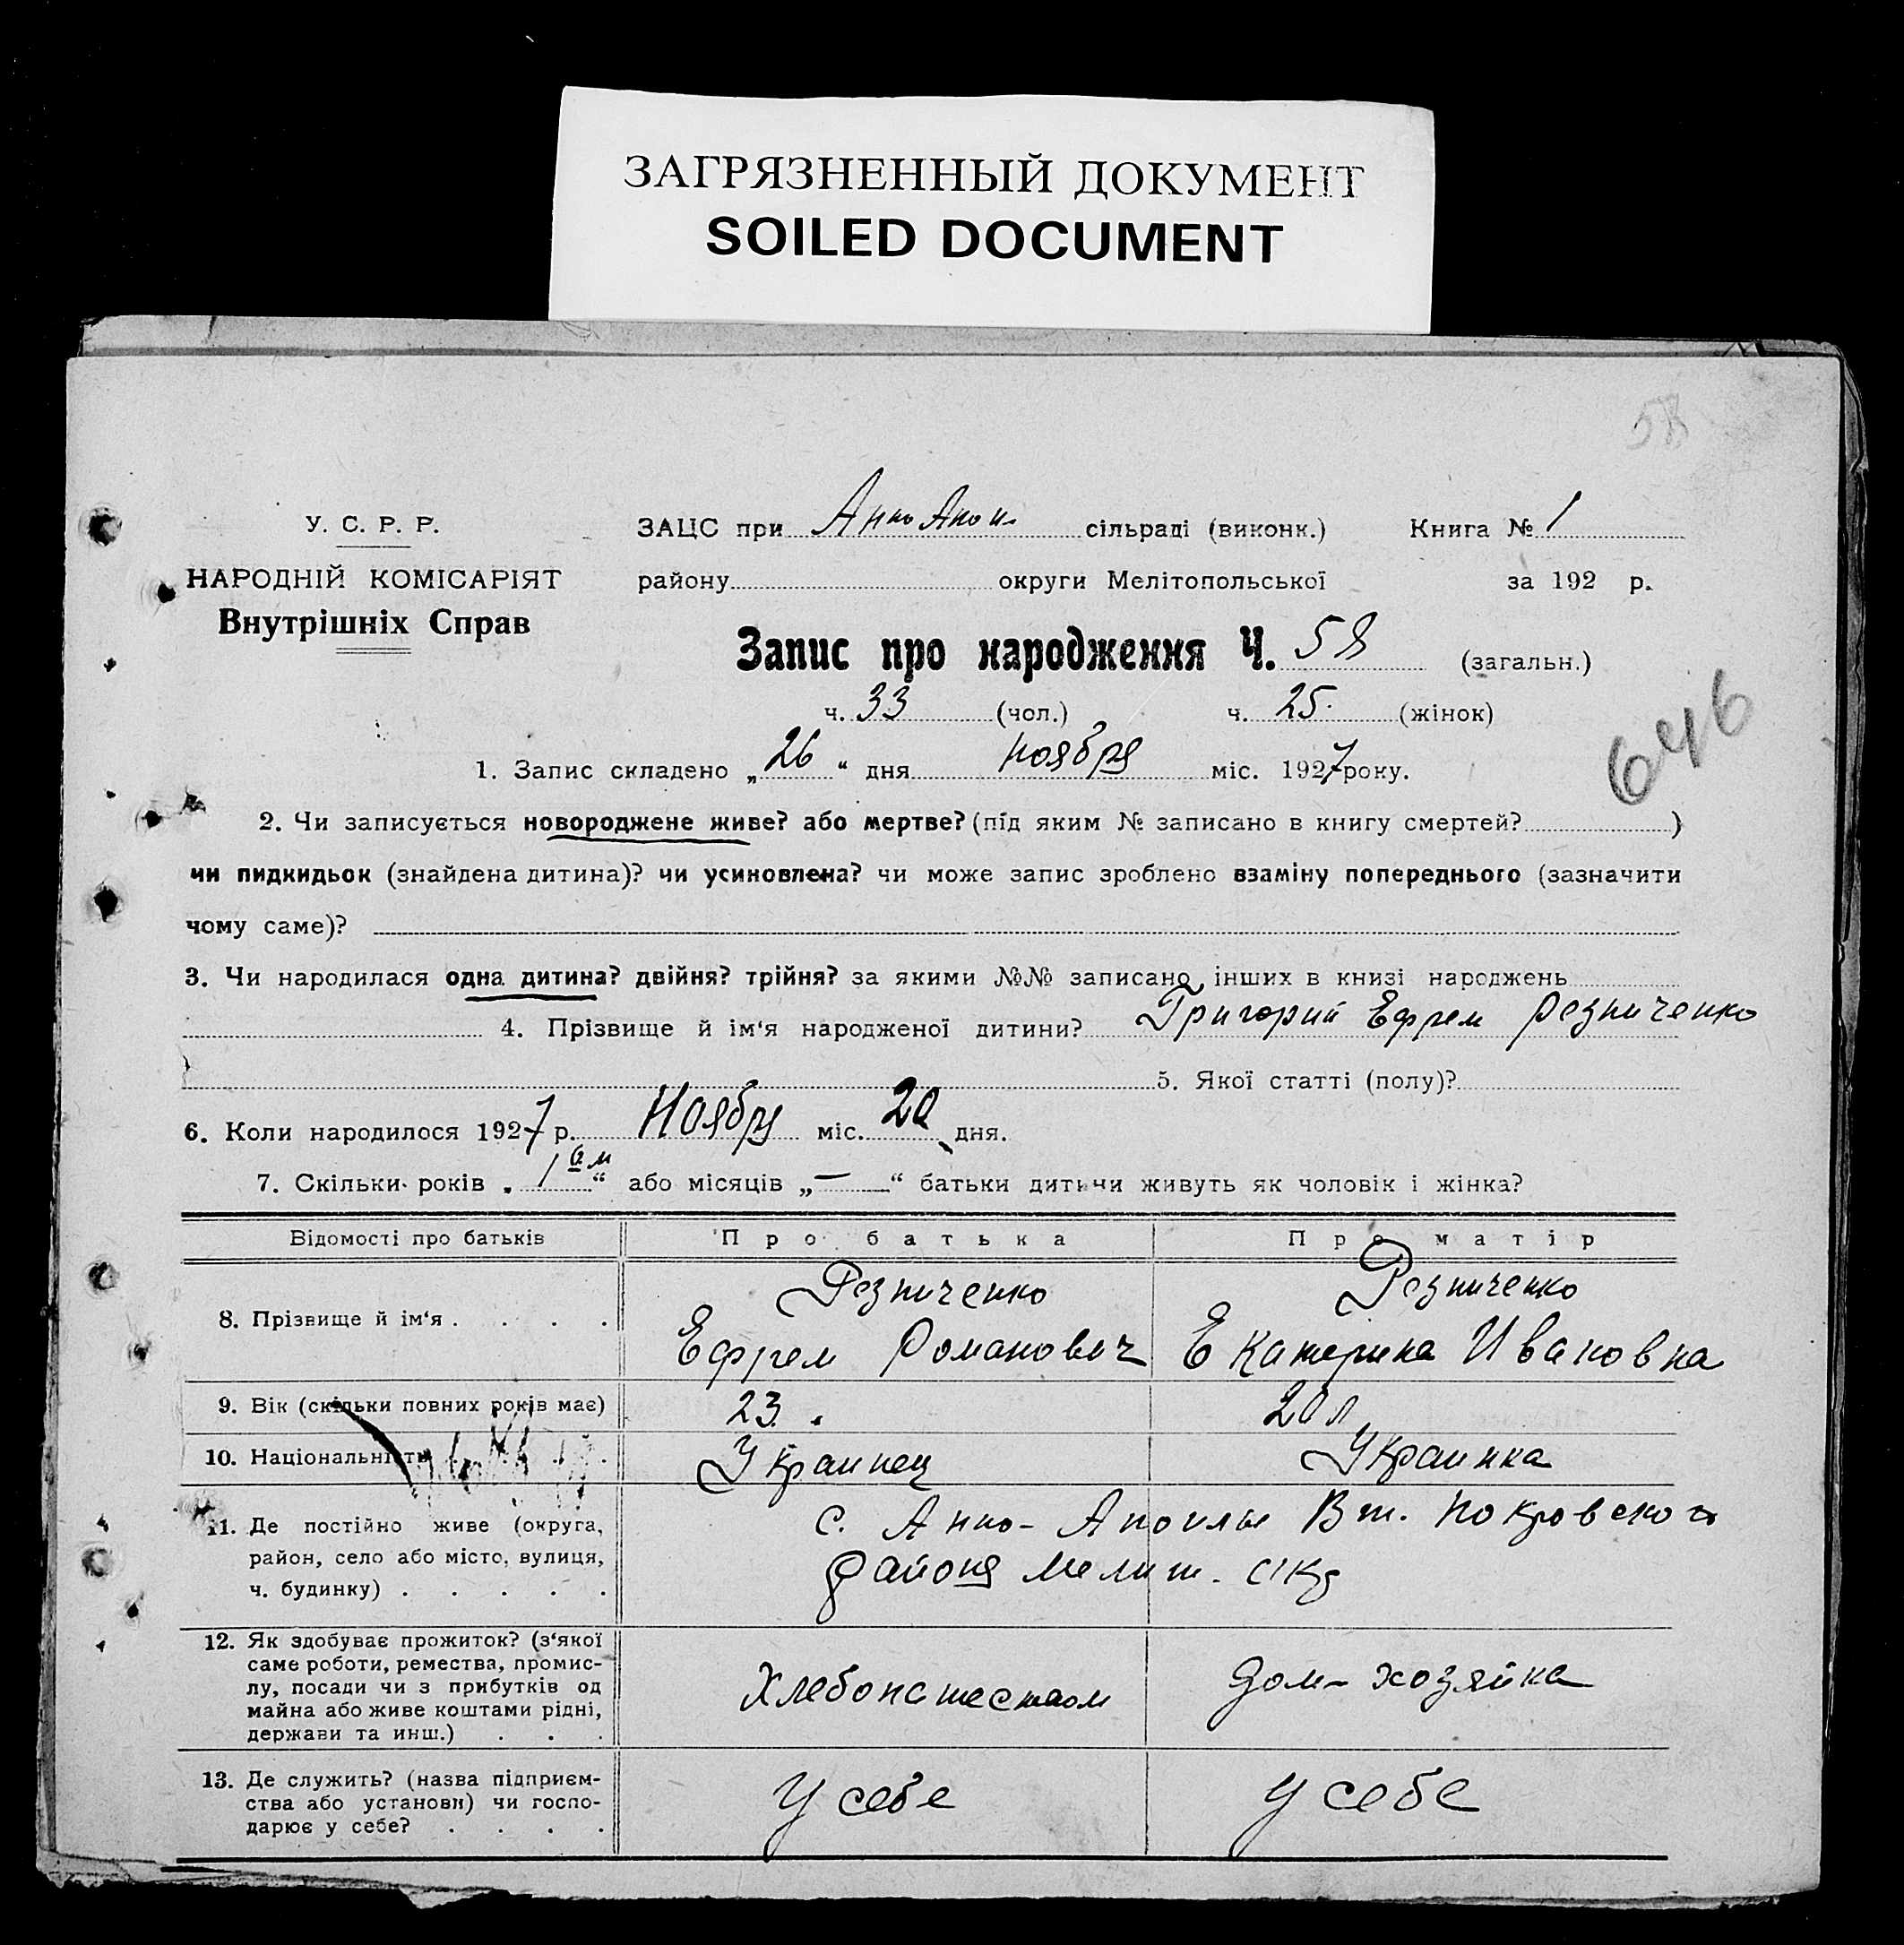 ЗАГРЯЗНЕННЫЙ ДОКУМЕНТ
SOILED DOCUMENT
58
У. С. Р. Р.
НАРОДНІЙ КОМІСАРІЯТ
Внутрішніх Справ
ЗАЦС при Анно Апол. сільраді (виконк.) Книга № 1
району округи Мелітопольської за 192 р.
Запис про народження Ч. 58 (загальн.)
ч. 33 (чол.) ч. 25. (жінок)
646
1. Запис складено „26“ дня ноября міс. 1927 року.
2. Чи записується новороджене живе? або мертве? (під яким № записано в книгу смертей? )
чи пидкидьок (знайдена дитина)? чи усиновлена? чи може запис зроблено взаміну попереднього (зазначити
чому саме)?
3. Чи народилася одна дитина? двійня? трійня? за якими №№ записано інших в книзі народжень
4. Прізвище й ім‘я народженої дитини? Григорий Ефрем Резниченко
5. Якої статті (полу)?
6. Коли народилося 1927 р. Ноября міс. 20 дня.
7. Скільки років „1“ або місяців „—“ батьки дитини живуть як чоловік і жінка?
Відомості про батьків Про батька Про матір
8. Прізвище й ім‘я . . . . Резниченко Ефрем Романович Резниченко Екатерина Ивановна
9. Вік (скільки повних років має) 23. 20 л
10. Національність Украинец Украинка
11. Де постійно живе (округа,
район, село або місто, вулиця,
ч. будинку) . . . . .
с. Анно-Аполы Вт. Покровского
района Мелит. окр
12. Як здобуває прожиток? (з‘якої
саме роботи, ремества, промис-
лу, посади чи з прибутків од
майна або живе коштами рідні,
держави та инш.) . . .
Хлебопашеством Дом-хозяйка
13. Де служить? (назва підприєм-
ства або установи) чи госпо-
дарює у себе? . . . .
У себе У себе